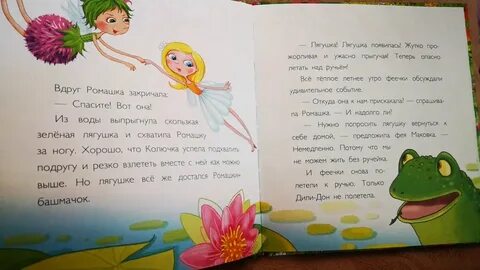 Вдруг Ромашка закричала:
— Спасите! Вот она!
Из воды выпрыгнула скользкая
зелёная лягушка и схватила Ромашку
за ногу. Хорошо, что Колючка успела подхватить
подругу и резко взлететь вместе с ней как можно
выше. Но лягушке всё же достался Ромашкин
башмачок.
— Лягушка! Лягушка появилась! Жутко про-
жорливая и ужасно прыгучая! Теперь опасно
летать над ручьём!
Всё тёплое летнее утро феечки обсуждали
удивительное событие.
— Откуда она к нам прискакала! — спрашива-
ла Ромашка. — И надолго ли?
— Нужно попросить лягушку вернуться к
себе домой, — предложила фея Маковка. —
Немедленно. Потому что мы
не можем жить без ручейка.
И феечки снова по-
летели к ручью. Только
Дили-Дон не полетела.